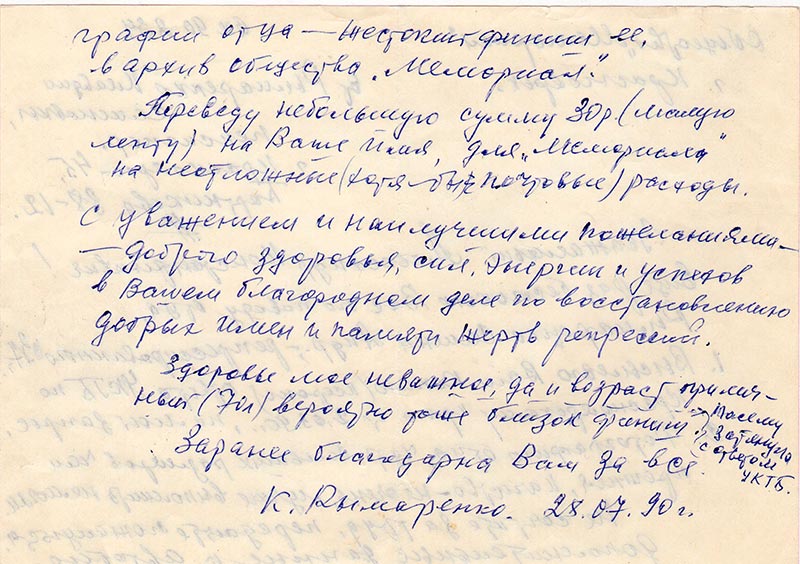 графии отца — жестокий финиш ее,
в архив общества „Мемориал".
Переведу небольшую сумму 30р. (малую
лепту) на Ваше имя, для „Мемориала"
на неотложные (хотя бы почтовые) расходы.
С уважением и наилучшими пожеланиями —
— доброго здоровья, сил, энергии и успехов
в Вашем благородном деле по восстановлению
добрых имен и памяти жертв репрессий.
Здоровье мое неважное, да и возраст прилич-
ный (70л) вероятно тоже близок финиш.
Посему
затянула
с ответом
УКГБ.
Заранее благодарна Вам за всё
К. Рымаренко. 28.07.90г.